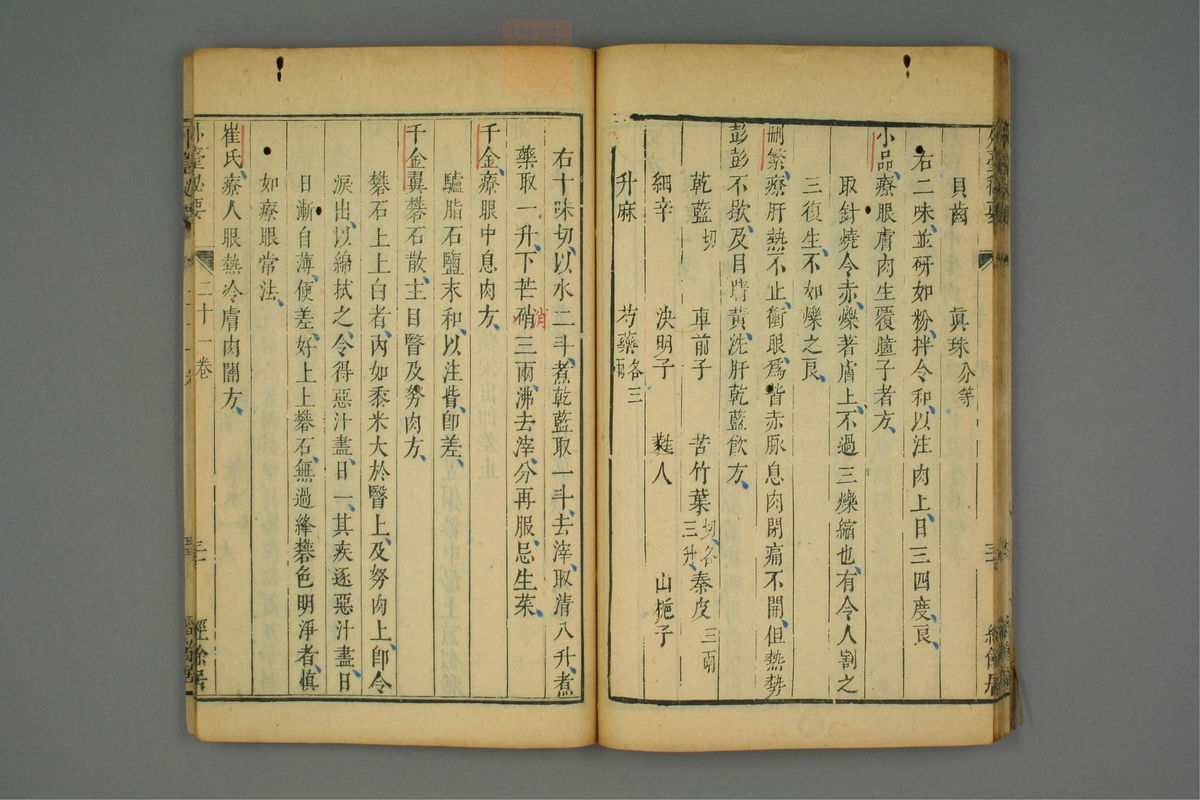 貝齒 真珠分等
右二味並研如粉拌令和以注肉上日三四度良
小品療眼膚肉生覆瞳子者方
取針燒令赤爍著膚上不過三爍縮也有令人割之
三復生不如爍之良
刪繁療肝熱不止衝眼為眥赤脉息肉閉痛不開但熱勢
彭彭不歇及目睛黃洗肝乾藍飲方
乾藍切 車前子 苦竹葉切各三升 秦皮三兩
細辛 決明子 蕤人 山梔子
升麻 芍藥各三兩
右十味切以水二斗煮乾藍取一斗去滓取清八升煮
藥取一升下芒硝三兩沸去滓分再服忌生菜
消
千金療眼中息肉方
驢脂石鹽末和以注眥即差
千金翼礬石散主目瞖及努肉方
礬石上上白者內如黍米大於瞖上及努肉上即令
淚出以綿拭之令得惡汁盡日一其疾逐惡汁盡日
日漸自薄便差好上上礬石無過絳礬色明淨者慎
如療眼常法
崔氏療人眼熱冷膚肉闇方
外臺秘要 二十一卷 三十 經餘居